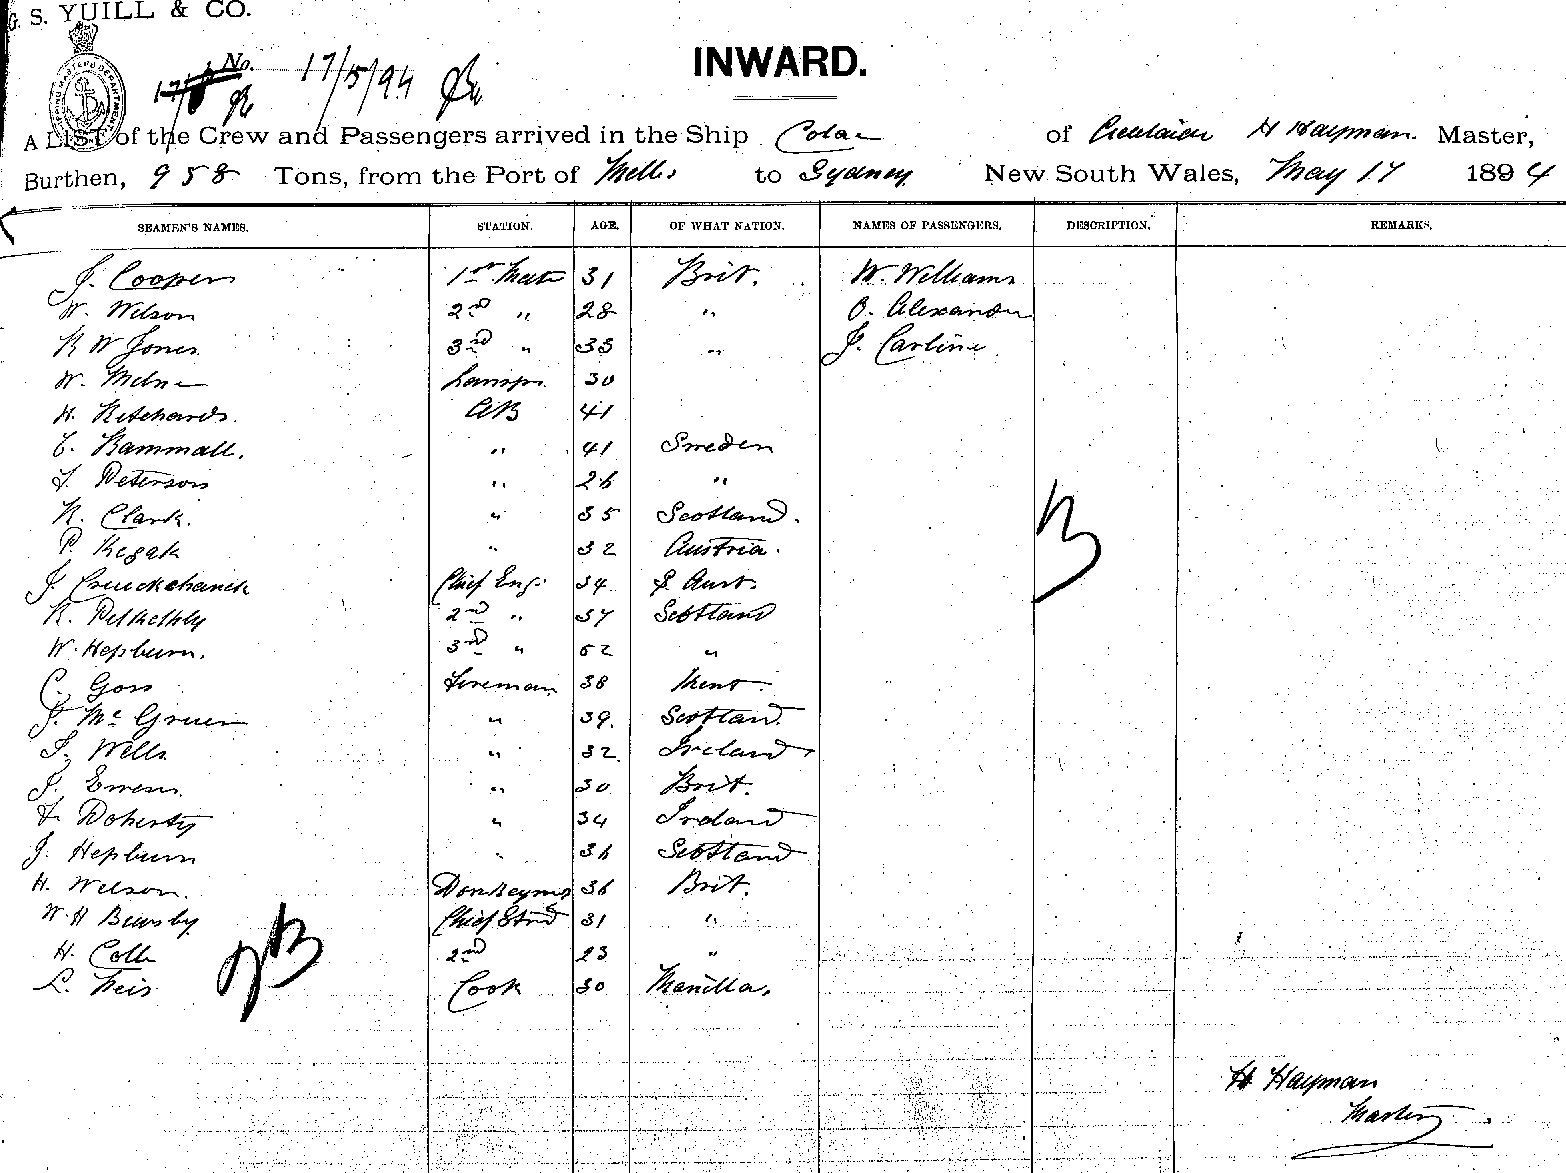 G. S. YUILL & CO.
No. 17/5/94
INWARD.
A LIST of the Crew and Passengers arrived in the Ship Colac of Adelaide H Hayman Master,
Burthen, 958 Tons, from the Port of Melb. to Sydney New South Wales, May 17 1894
SEAMEN'S NAMES. STATION. AGE. OF WHAT NATION. NAMES OF PASSENGERS. DESCRIPTION. REMARKS.
J. Cooper 1st Mate 31 Brit. W. Williams
W. Wilson 2nd " 28 " O. Alexander
R W Jones 3rd " 33 " J. Carline
W. Milne Lampr. 30
H. Richards. AB 41
C. Rammall. " 41 Sweden
F. Peterson " 26 "
R. Clark. " 35 Scotland.
P. Regak " 32 Austria.
J. Cruickshanck Chief Eng. 34 Aust.
R. 2nd " 37 Scotland
W. Hepburn. 3rd " 52 "
C. Goss Fireman 38
J. Mc Gruer " 39. Scotland
J. Wells " 32 Ireland
J. Ewens. " 30 Brit.
F. Doherty " 34 Ireland
J. Hepburn " 36 Scotland
H. Wilson. Donkeyman 36 Brit.
W. H Chief Strd 31 "
H. 2nd 23 "
L. Cook 30 Manilla.
H Hayman
Master